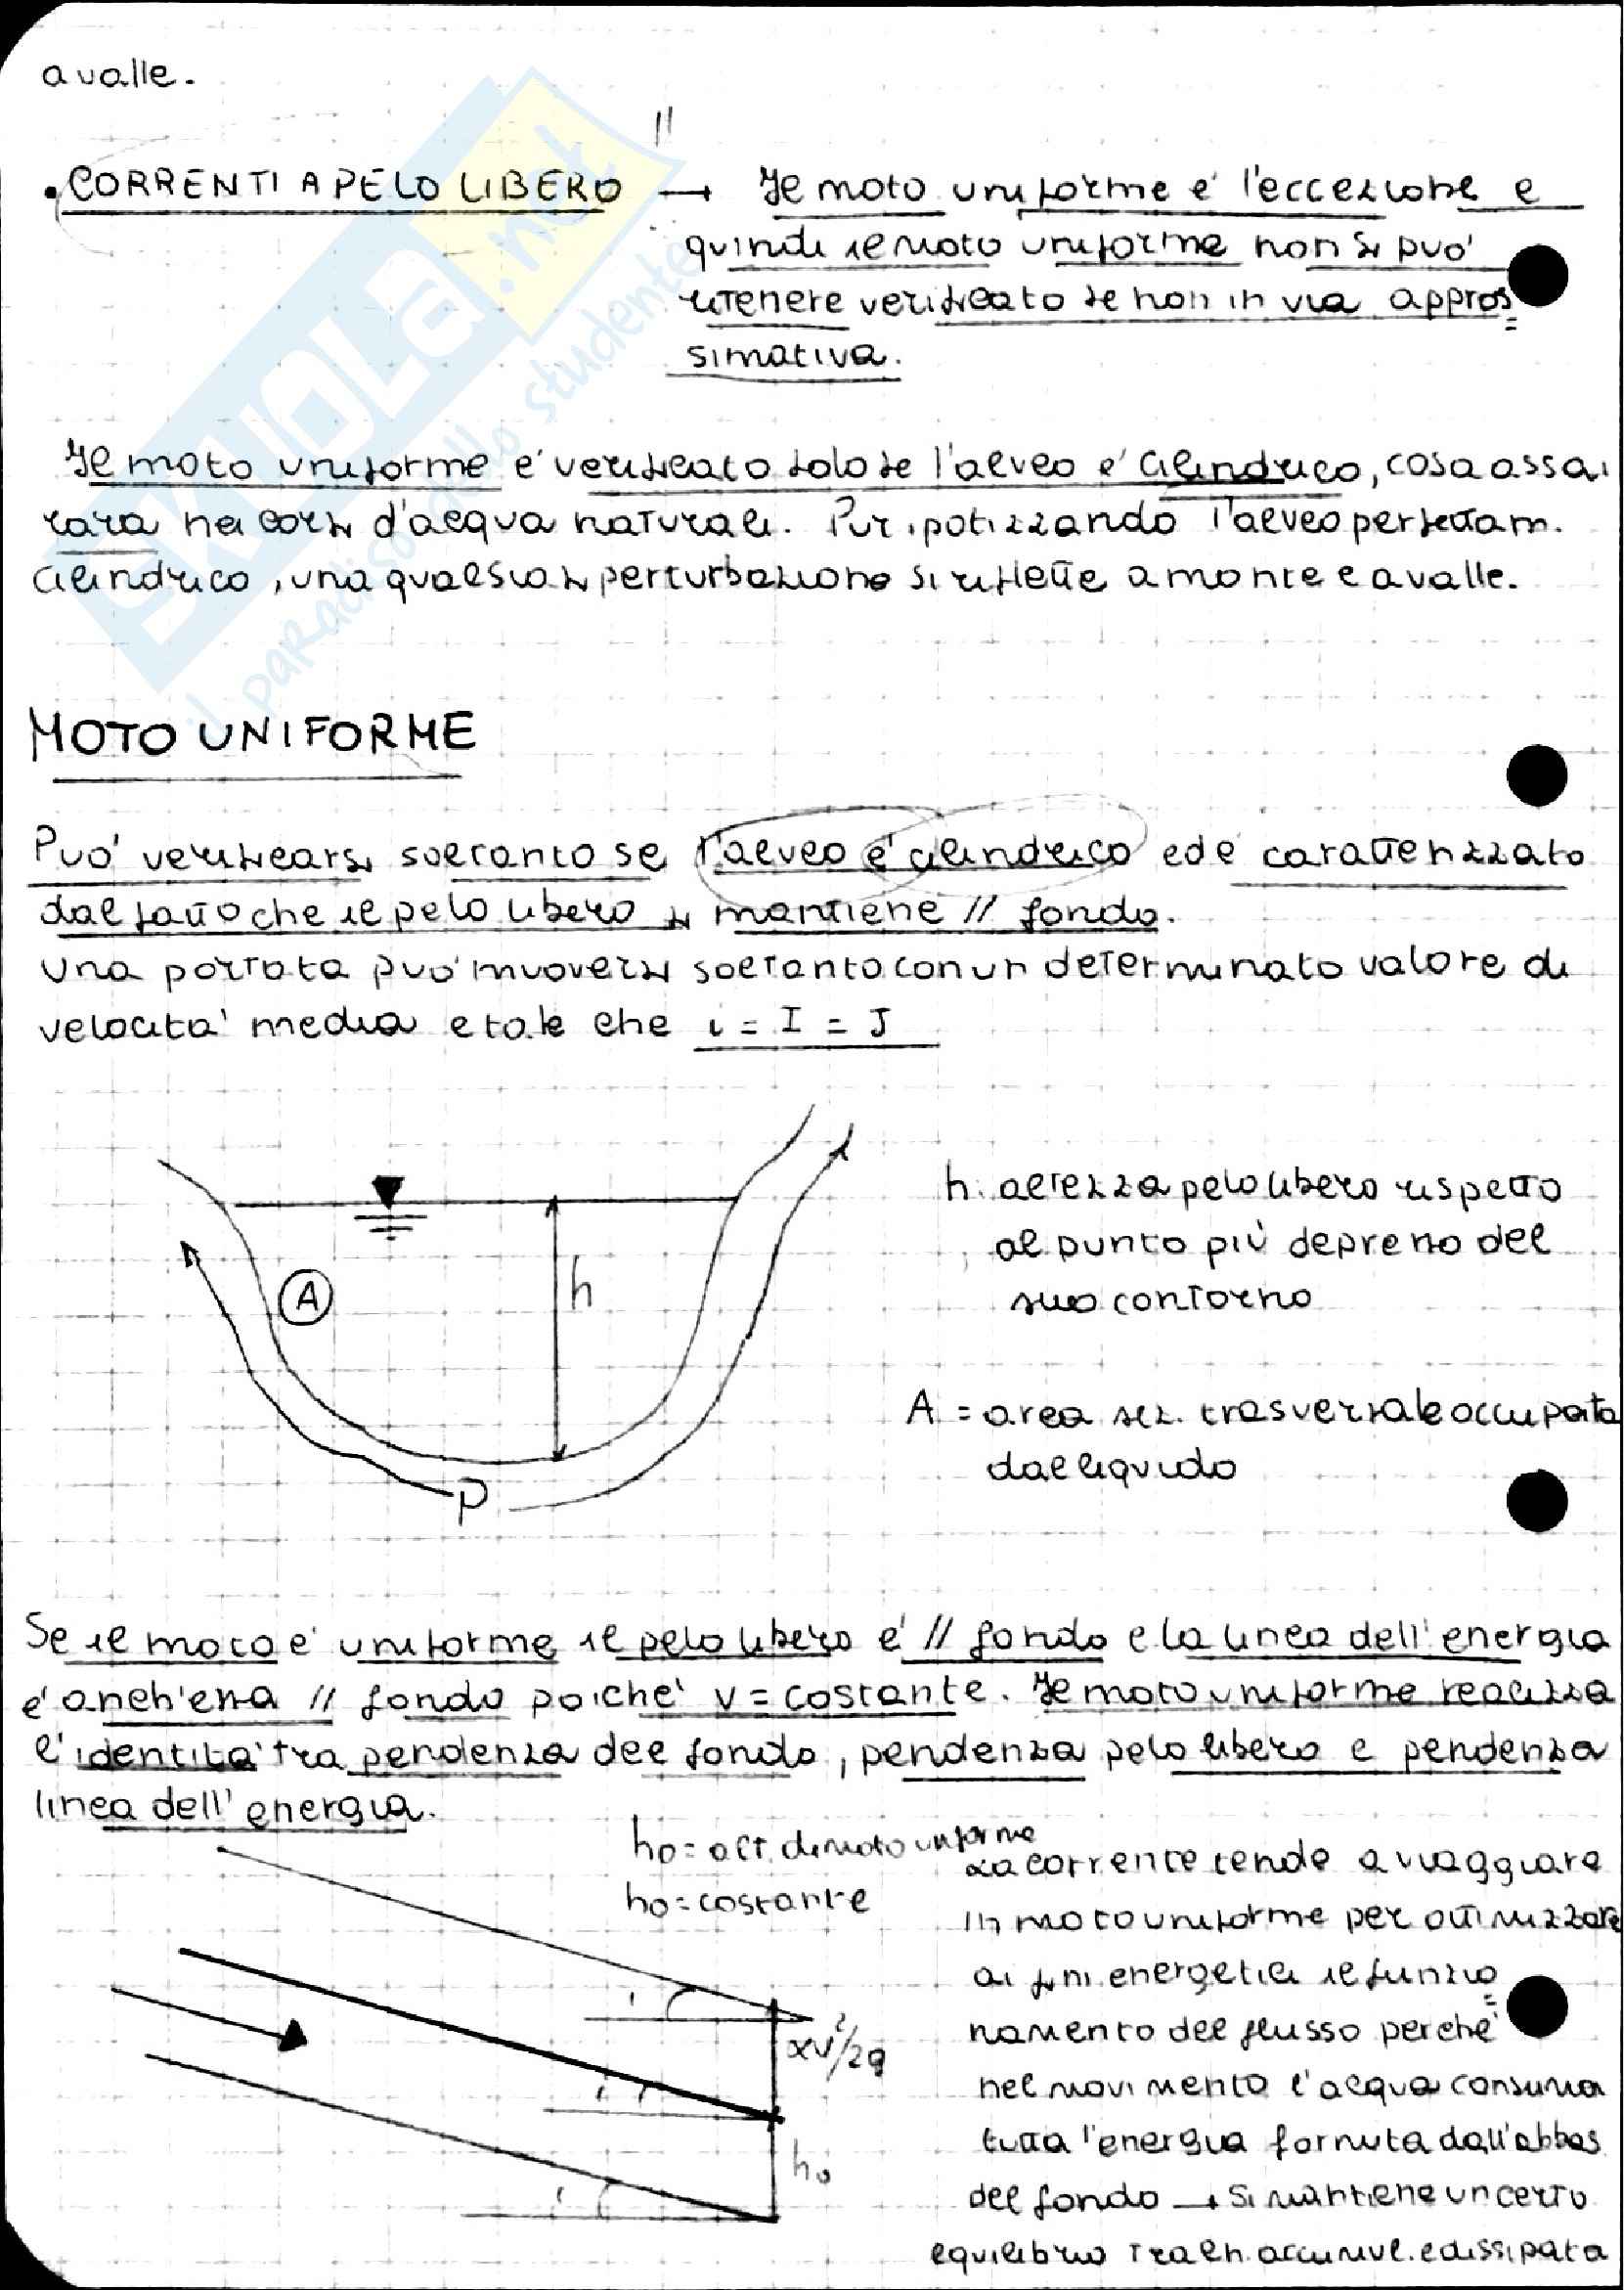 a valle.
• CORRENTI A PELO LIBERO → Il moto uniforme e' l'eccezione e
quindi il moto uniforme non si puo'
ritenere verificato se non in via appros=
simativa.
Il moto uniforme e' verificato solo se l'alveo e' cilindrico, cosa assai
rara nei corsi d'acqua naturali. Pur ipotizzando l'alveo perfettam.
cilindrico, una qualsiasi perturbazione si riflette a monte e a valle.
MOTO UNIFORME
Puo' verificarsi soltanto se l'alveo e' cilindrico ed e' caratterizzato
dal fatto che il pelo libero si mantiene // fondo.
Una portata puo' muoversi soltanto con un determinato valore di
velocita' media e tale che i = I = J
A
h
P
h. altezza pelo libero rispetto
al punto più depresso del
suo contorno
A = area sez. trasversale occupata
dal liquido
Se il moto e' uniforme il pelo libero e' // fondo e la linea dell'energia
e' anch'essa // fondo poiche' v = costante. Il moto uniforme realizza
l'identita' tra pendenza del fondo, pendenza pelo libero e pendenza
linea dell'energia.
h0 = alt. di moto uniforme
h0 = costante
i
αv²/2g
i
h0
i
La corrente tende a viaggiare
in moto uniforme per ottimizzare
ai fini energetici il funzio=
namento del flusso perche'
nel movimento l'acqua consuma
tutta l'energia fornita dall'abbas.
del fondo → si mantiene un certo
equilibrio tra en. accumul. e dissipata
SKUOLA.net
il paradiso dello studente